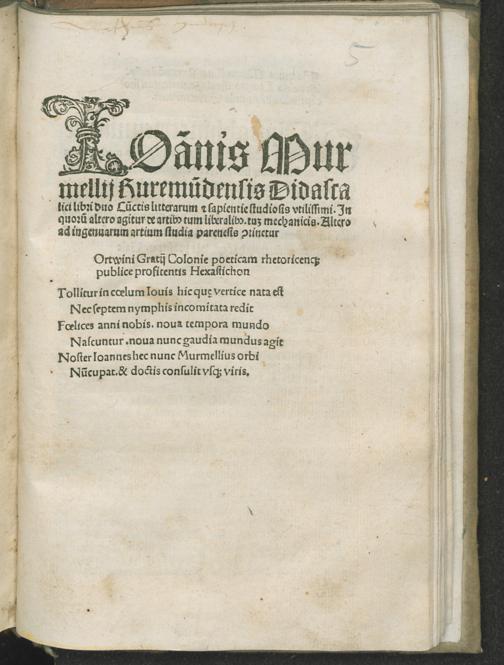 5
IOãnis Mur
mellij Ruremũdensis Didasca
lici libri duo Cũctis litterarum ⁊ sapientie studiosis vtilissimi. In
quorũ altero agitur de artibꝰ tum liberalibꝰ. tuȝ mechanicis. Altero
ad ingenuarum artium studia parenesis ꝯtinetur
Ortwini Gratij Colonie poeticam rhetoricenqȝ
publice profitentis Hexastichon
Tollitur in cœlum Iouis hic quę vertice nata est
Nec septem nymphis incomitata redit
Fœlices anni nobis. noua tempora mundo
Nascuntur. noua nunc gaudia mundus agit
Noster Ioannes hec nunc Murmellius orbi
Nũcupat. & doctis consulit vsqȝ viris.